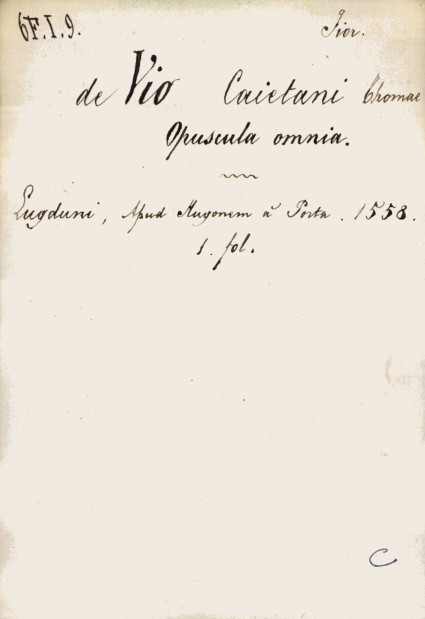 6F.I.9.
Fior.
de Vio Caietani Thomae
Opuscula omnia.
Lugduni, Apud Hugonem à Porta. 1558.
1. fol.
C